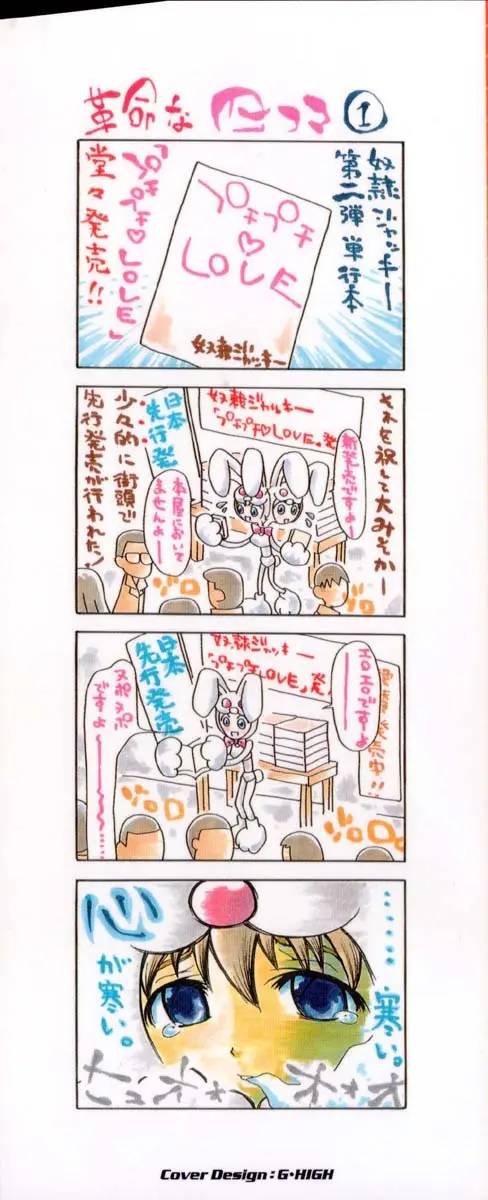 革命な
①
奴隷ジャッキー
第二弾単行本
プチプチ♡LOVE
奴隷ジャッキー
「プチプチ♡LOVE」
堂々発売!!
それを祝して大みそかー
奴隷ジャッキー
「プチプチ♡LOVE」発
新発売ですよー
日本
先行発
本屋において
ませんよー
ゾロ
ゾロ
少々的に街頭で
先行発売が行われた!
奴隷ジャッキー
「プチプチLOVE」発
エロエロですよ
発売中!!
日本
先行発売
ズポズポ
ですよ〜〜……
ゾロ
ゾロ
……寒い。
心
が寒い。
Cover Design:G・HIGH